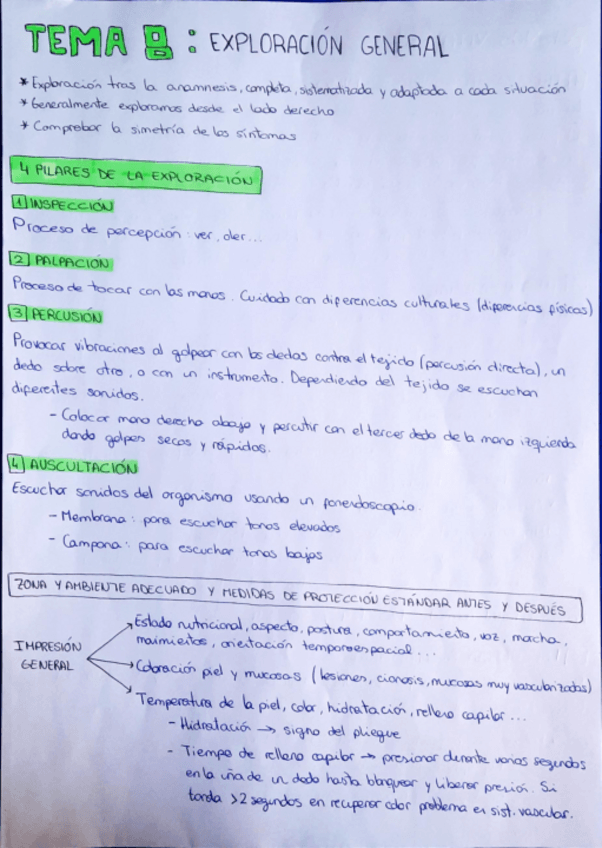 TEMA 8: EXPLORACIÓN GENERAL
* Exploración tras la anamnesis, completa, sistematizada y adaptada a cada situación
* Generalmente exploramos desde el lado derecho
* Comprobar la simetría de los síntomas
4 PILARES DE LA EXPLORACIÓN
1 INSPECCIÓN
Proceso de percepción: ver, oler...
2 PALPACIÓN
Proceso de tocar con las manos. Cuidado con diferencias culturales (diferencias físicas)
3 PERCUSIÓN
Provocar vibraciones al golpear con los dedos contra el tejido (percusión directa), un
dedo sobre otro, o con un instrumento. Dependiendo del tejido se escuchan
diferentes sonidos.
- Colocar mano derecha abajo y percutir con el tercer dedo de la mano izquierda
dando golpes secos y rápidos.
4 AUSCULTACIÓN
Escuchar sonidos del organismo usando un fonendoscopio.
- Membrana: para escuchar tonos elevados
- Campana: para escuchar tonos bajos
ZONA Y AMBIENTE ADECUADO Y MEDIDAS DE PROTECCIÓN ESTÁNDAR ANTES Y DESPUÉS
IMPRESIÓN GENERAL
→ Estado nutricional, aspecto, postura, comportamiento, voz, marcha,
movimientos, orientación temporoespacial...
→ Coloración piel y mucosas (lesiones, cianosis, mucosas muy vascularizadas)
→ Temperatura de la piel, color, hidratación, relleno capilar...
- Hidratación → signo del pliegue
- Tiempo de relleno capilar → presionar durante varios segundos
en la uña de un dedo hasta blanquear y liberar presión. Si
tarda >2 segundos en recuperar color problema en sist. vascular.